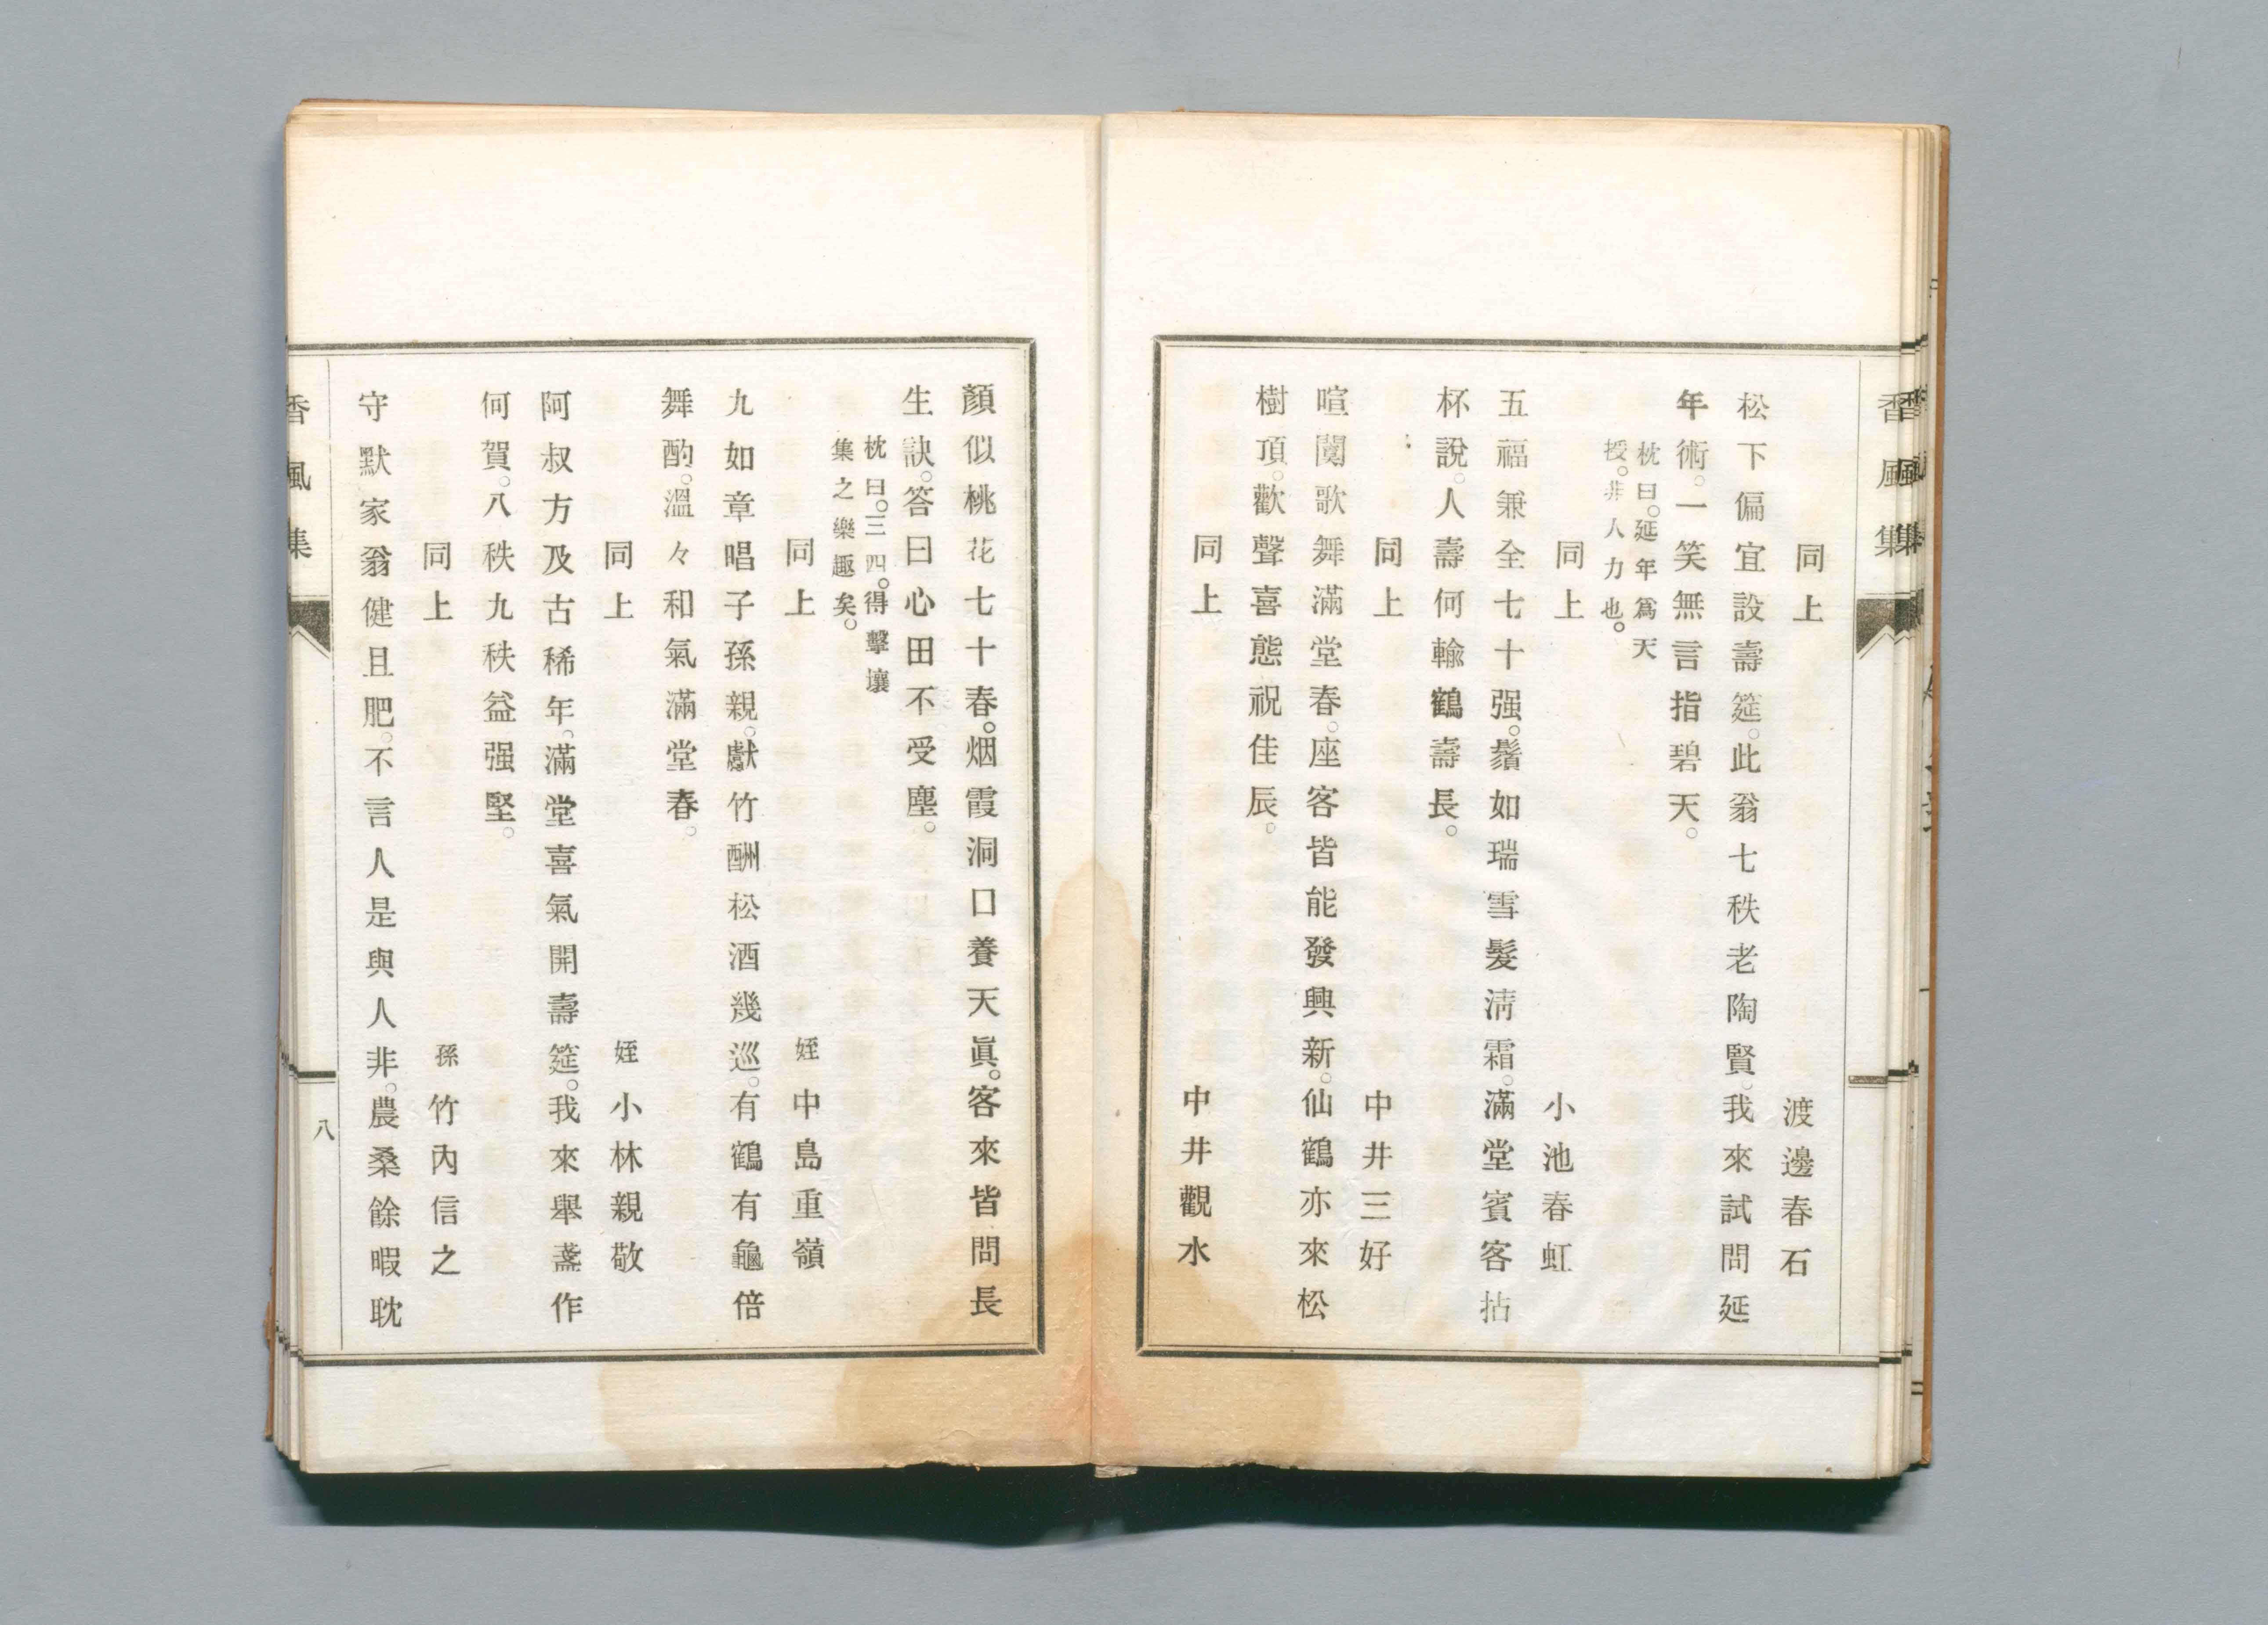 香風集
同上　渡邊春石
松下偏宜設壽筵。此翁七秩老陶賢。我來試問延
年術。一笑無言指碧天。
枕曰。延年爲天
授。非人力也。
同上　小池春虹
五福兼全七十强。鬚如瑞雪髮淸霜。滿堂賓客拈
杯說。人壽何輸鶴壽長。
同上　中井三好
喧闐歌舞滿堂春。座客皆能發興新。仙鶴亦來松
樹頂。歡聲喜態祝佳辰。
同上　中井觀水
顏似桃花七十春。烟霞洞口養天眞。客來皆問長
生訣。答曰心田不受塵。
枕曰。三四。得擊壤
集之樂趣矣。
同上　姪 中島重嶺
九如章唱子孫親。獻竹酬松酒幾巡。有鶴有龜倍
舞酌。溫々和氣滿堂春。
同上　姪 小林親敬
阿叔方及古稀年。滿堂喜氣開壽筵。我來舉盞作
何賀。八秩九秩益强堅。
同上　孫 竹內信之
守默家翁健且肥。不言人是與人非。農桑餘暇耽
香風集
八